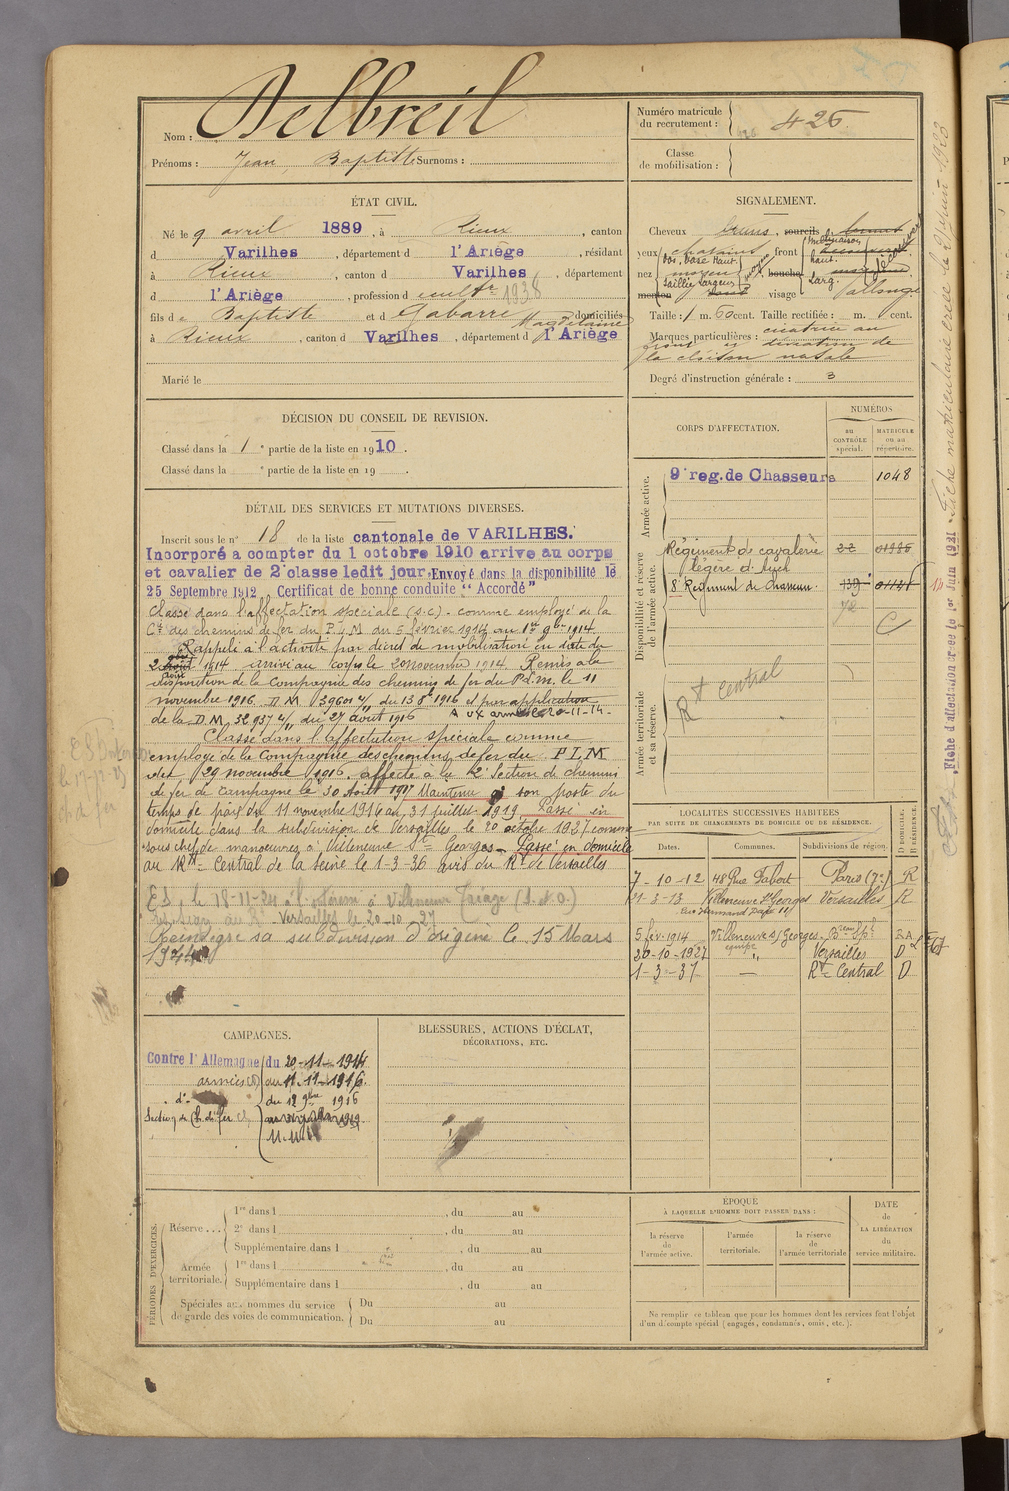 Nom : Delbreil
Prénoms : Jean Baptiste Surnoms :
Numéro matricule du recrutement : 426
Classe de mobilisation :
ÉTAT CIVIL.
Né le 9 avril 1889, à Rieux, canton
d Varilhes, département d l'Ariège, résidant
à Rieux, canton d Varilhes, département
d l'Ariège, profession d cultr 1938
fils de Baptiste et d Gabarre Magdelaine domiciliés
à Rieux, canton d Varilhes, département d l'Ariège
Marié le
SIGNALEMENT.
Cheveux bruns, sourcils bruns
yeux chatains front
nez moyen, bouche
menton visage allongé
Taille : 1 m. 60 cent. Taille rectifiée : m. cent.
Marques particulières : cicatrice au
front et déviation de
la cloison nasale
Degré d'instruction générale : 3
DÉCISION DU CONSEIL DE REVISION.
Classé dans la 1e partie de la liste en 1910.
Classé dans la e partie de la liste en 19 .
DÉTAIL DES SERVICES ET MUTATIONS DIVERSES.
Inscrit sous le n° 18 de la liste cantonale de VARILHES.
Incorporé a compter du 1 octobre 1910 arrive au corps
et cavalier de 2e classe ledit jour. Envoyé dans la disponibilité le
25 Septembre 1912 Certificat de bonne conduite "Accordé"
Classé dans l'affectation spéciale (S.C) comme employé de la
Cie des chemins de fer du P.L.M du 5 février 1914 au 1er 9bre 1914
Rappelé à l'activité par décret de mobilisation en date du
2 août 1914 arrivé au corps le 20 novembre 1914. Remis à la
disposition de la Compagnie des chemins de fer du P.L.M. le 11
novembre 1916. D.M 39601 4/ du 13 8e 1916 et par application
de la D.M. 32.937 4/ du 27 août 1916
Classé dans l'affectation spéciale comme
employé de la Compagnie des chemins de fer du P L M
29 novembre 1916. affecté à la Section de chemins
de fer de campagne le 30 Août 1917 Maintenu à son poste du
temps de paix du 11 novembre 1916 au 31 juillet 1919 Passé en
domicile dans la subdivision de Versailles le 20 octobre 1927 comme
sous chef de manoeuvres à Villeneuve St Georges. Passé en domicile
au Rt Central de la Seine le 1-3-36 avis du Rt de Versailles
ES, le 18-11-24 à Villeneuve Triage (S. et O.)
Versailles le 20-10-27
Réintègre sa subdivision d'origine le 15 Mars
CORPS D'AFFECTATION.
NUMÉROS
au CONTRÔLE spécial.
MATRICULE ou au répertoire.
Armée active.
9e reg. de Chasseurs 1048
Disponibilité et réserve de l'armée active.
Régiment de cavalerie légère d'Auch 22
8e Régiment de Chasseurs. 139
Armée territoriale et sa réserve.
Rt Central
LOCALITÉS SUCCESSIVES HABITÉES
PAR SUITE DE CHANGEMENTS DE DOMICILE OU DE RÉSIDENCE.
Dates. Communes. Subdivisions de région. D DOMICILE. R RÉSIDENCE.
7-10-12 48 Rue Fabert Paris (7e) R
21-3-13 Villeneuve St Georges Versailles R
5 fév. 1914 Villeneuve St Georges
20-10-1927 " Versailles D
1-3-37 — Rt Central D
CAMPAGNES.
Contre l'Allemagne du 20-11-1914
armées au 11.11-1916.
du 12 9bre 1916
Section de Ch. de fer
BLESSURES, ACTIONS D'ÉCLAT,
DÉCORATIONS, ETC.
PÉRIODES D'EXERCICES.
Réserve... 1re dans l , du au
2e dans l , du au
Supplémentaire dans l , du au
Armée territoriale. 1re dans l , du au
Supplémentaire dans l , du au
Spéciales aux hommes du service de garde des voies de communication. Du au
Du au
ÉPOQUE
À LAQUELLE L'HOMME DOIT PASSER DANS :
la réserve de l'armée active.
l'armée territoriale.
la réserve de l'armée territoriale
DATE de LA LIBÉRATION du service militaire.
Ne remplir ce tableau que pour les hommes dont les services font l'objet
d'un décompte spécial (engagés, condamnés, omis, etc.).
Fiche d'affectation créée le 1er Juin 1921